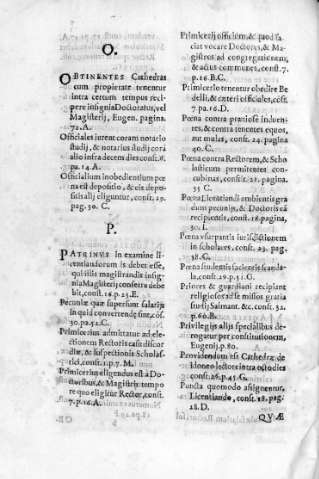 O.
OBTINENTES Cathedras
cum proprietate tenentur
intra certum tempus reci
pere insignia Doctoratus, vel
Magisterij, Eugen. pagina.
72. A.
Officiales iurent coram notario
studij, & notarius studij corā
alio infra decem dies const. 6.
pa. 14. A.
Officialium inobedientium pœ
na est depositio, & eis depo-
sitis alij eliguntur, const. 29.
pag. 30. C.
P.
PATRINVS in examine li-
centiandorum is debet esse,
qui illis magistrandis insig-
nia Magisterij conferre debe
bit, const. 16. p. 23. E.
Pecuniæ quæ superfunt salarijs
in quid convertendę sint, cōs.
30. pa. 52. C.
Primicerius admittatur ad ele-
ctionem Rectoris casu discor
diæ, & in spectionis Scholas-
trici, const. 1. p. 7. M.
Primicerius eligendus est a Do-
ctoribus, & Magistris tempo
re quo eligitur Rector, const.
7. p. 16. A.
Primicerij officium, & quod fa
ciat vocare Doctores, & Ma-
gistros ad congregationem,
& actus communes, const. 7.
p. 16. B. C.
Primicerio tenentur obedire Be
delli, & cæteri officiales, cōst.
7. pa. 16. D.
Pœna contra prætiose induen-
tes, & contra tenentes equos,
aut mulas, const. 24. pagina
40. C.
Pœna contra Rectorem, & Scho
lasticum permittentes con-
cubinas, constit. 22. pagina.
35 C.
Pœna Licentiandi ambientis gra
dum pecunijs, & Doctoris eā
recipientis, const. 18. pagina
30, I.
Pœna vsurpantis iurisdictionem
in scholares, const. 23. pag.
38. C.
Pœna studentis facientis scanda-
la, const. 29. p. 51. C.
Priores & guardiani recipiant
religiosos ad se missos gratia
studij Salmant. &c. const. 32.
p. 60. B.
Privilegijs alijs specialibus de-
rogatur per constitutionem,
Eugenij. p. 80.
Providendum est Cathedræ de
idoneo lectore intra octo dies
const. 26. p. 45. G.
Puncta quomodo assignentur,
Licentiando, const. 18. pag.
28. D.
QVÆ